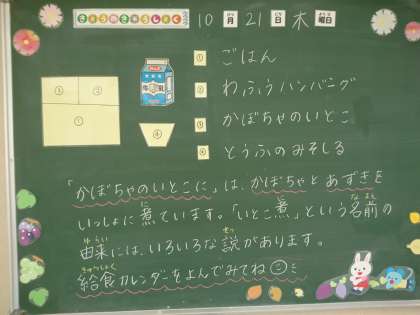 きょうのきゅうしょく
10月21日木曜日
① ごはん
② わふうハンバーグ
③ かぼちゃのいとこに
④ とうふのみそしる
③ ②
①
④
牛乳
「かぼちゃのいとこに」は、かぼちゃとあずきを
いっしょに煮ています。「いとこ煮」という名前の
由来には、いろいろな説があります。
給食カレンダーを読んでみてね